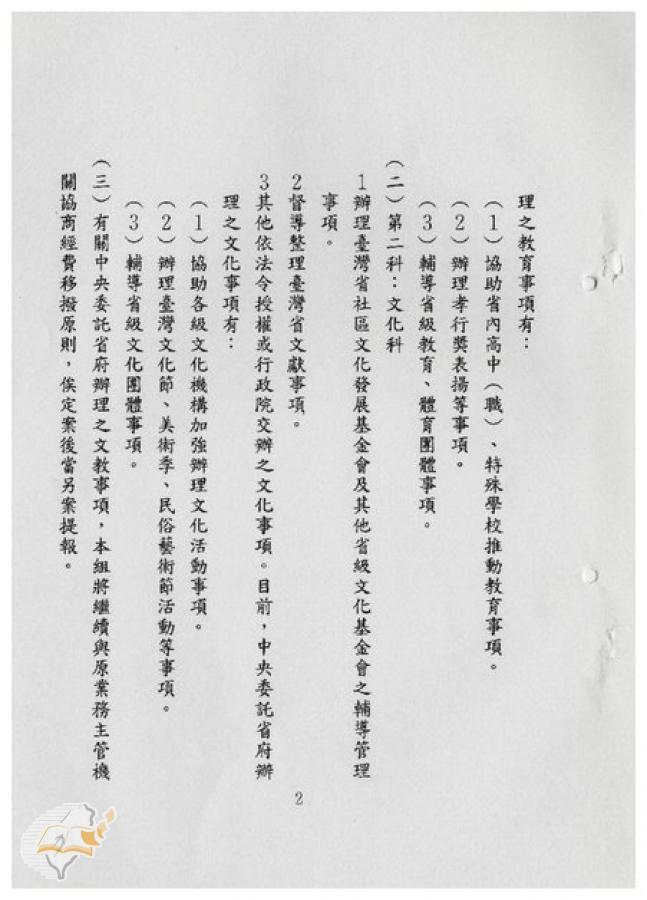 理之教育事項有：
（1）協助省內高中（職）、特殊學校推動教育事項。
（2）辦理孝行獎表揚等事項。
（3）輔導省級教育、體育團體事項。
（二）第二科：文化科
1辦理臺灣省社區文化發展基金會及其他省級文化基金會之輔導管理
事項。
2督導整理臺灣省文獻事項。
3其他依法令授權或行政院交辦之文化事項。目前，中央委託省府辦
理之文化事項有：
（1）協助各級文化機構加強辦理文化活動事項。
（2）辦理臺灣文化節、美術季、民俗藝術節活動等事項。
（3）輔導省級文化團體事項。
（三）有關中央委託省府辦理之文教事項，本組將繼續與原業務主管機
關協商經費移撥原則，俟定案後當另案提報。
2